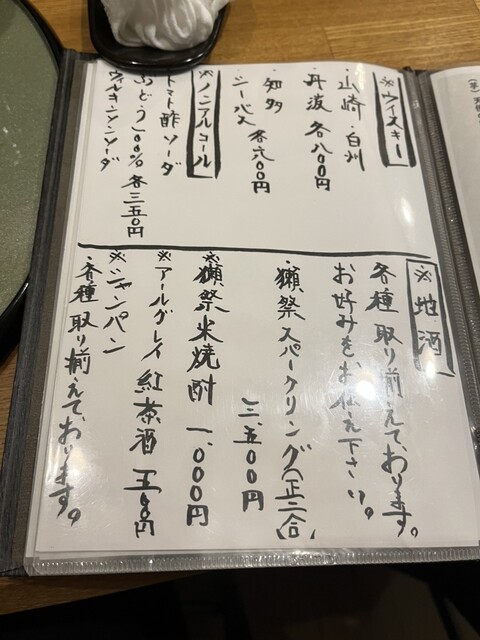 ※ウイスキー
・山崎・白州
・丹波 各八〇〇円
・知多
・シーバス 各六〇〇円
※ノンアルコール
・トマト酢ソーダ
・ぶどう100% 各三五〇円
・ウィルキンソンソーダ
※地酒
各種取り揃えております。
お好みをお伝え下さい。
・獺祭スパークリング(正二合)
三、五〇〇円
※獺祭米焼酎 一、〇〇〇円
※アールグレイ紅茶酒 五五〇円
※シャンパン
・各種取り揃えております。